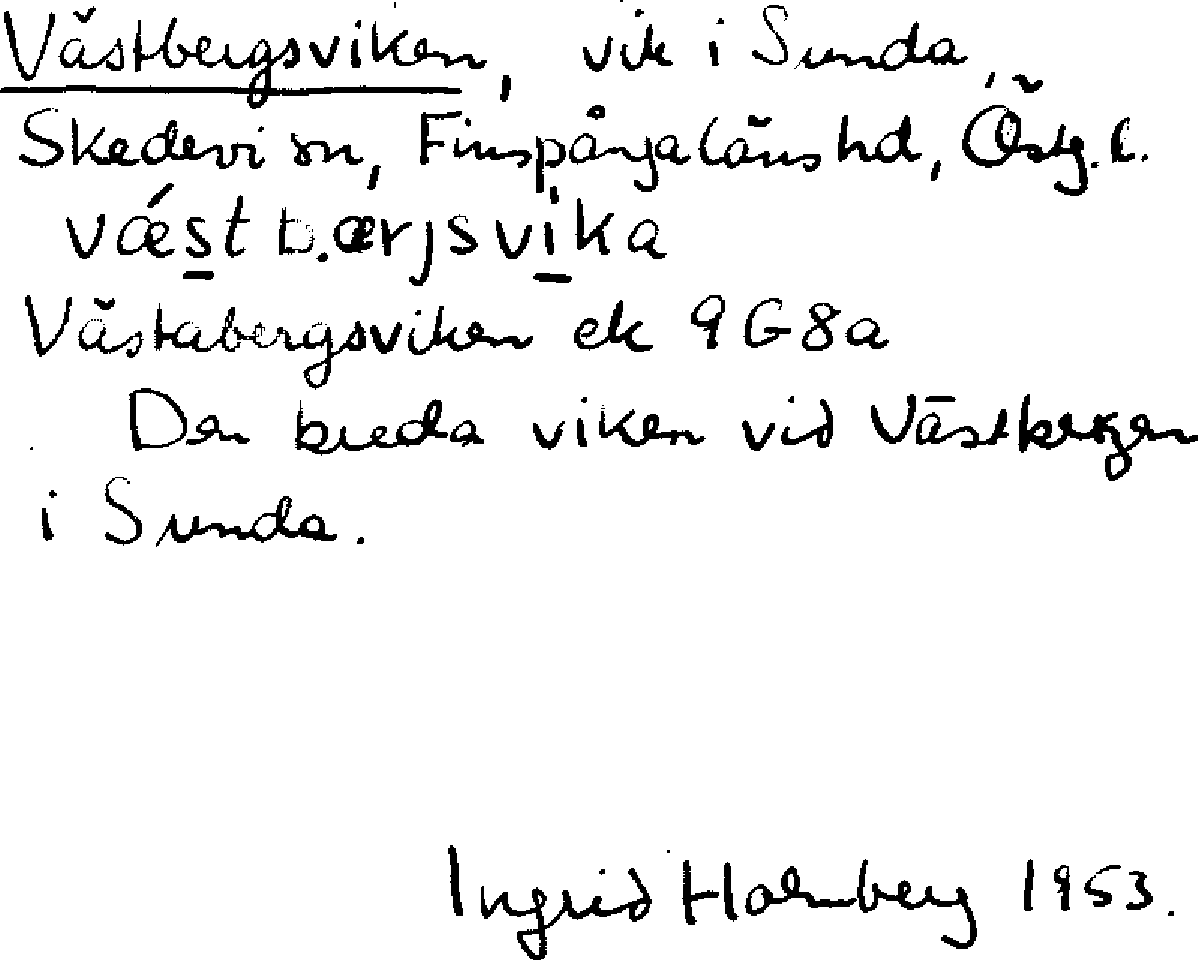 Västbergsviken, vik i Sunda,
Skedevi sn, Finspångaläns hd, Östg. l.
vǽstb.ærjsvika
Västabergsviken ek 9G8a
Den breda viken vid Västbergen
i Sunda.
Ingrid Holmberg 1953.